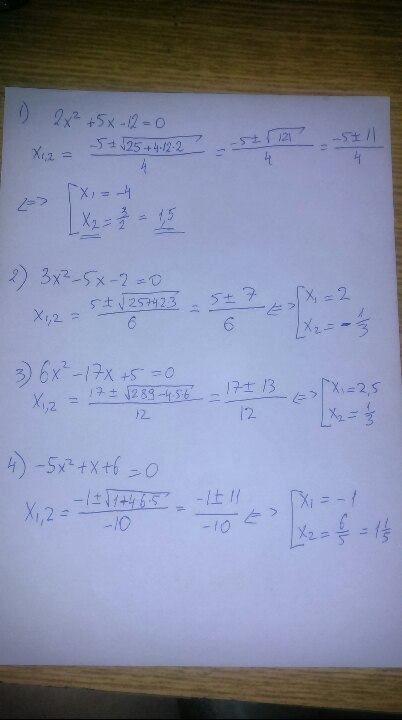 1) 2x² + 5x - 12 = 0
x₁,₂ = (-5 ± √(25+4·12·2))/4 = (-5 ± √121)/4 = (-5 ± 11)/4
<=> [x₁ = -4
x₂ = 3/2 = 1,5
2) 3x² - 5x - 2 = 0
x₁,₂ = (5 ± √(25+4·2·3))/6 = (5 ± 7)/6 <=> [x₁ = 2
x₂ = -1/3
3) 6x² - 17x + 5 = 0
x₁,₂ = (17 ± √(289-4·5·6))/12 = (17 ± 13)/12 <=> [x₁ = 2,5
x₂ = 1/3
4) -5x² + x + 6 = 0
x₁,₂ = (-1 ± √(1+4·6·5))/-10 = (-1 ± 11)/-10 <=> [x₁ = -1
x₂ = 6/5 = 1 1/5